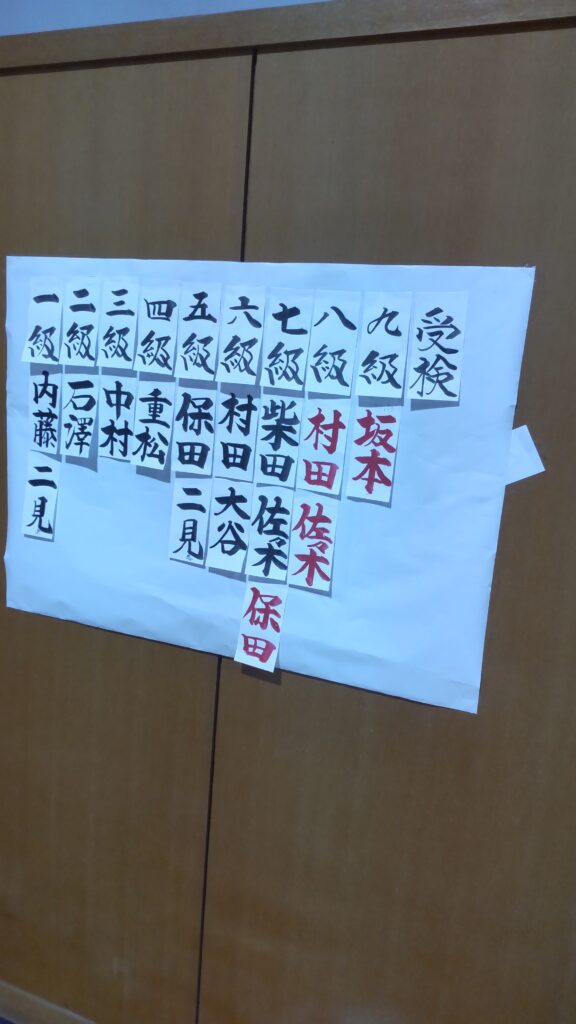 受検
九級 坂本
八級 村田 佐々木
七級 柴田 佐々木 保田
六級 村田 大谷
五級 保田 二見
四級 重松
三級 中村
二級 石澤
一級 内藤 二見